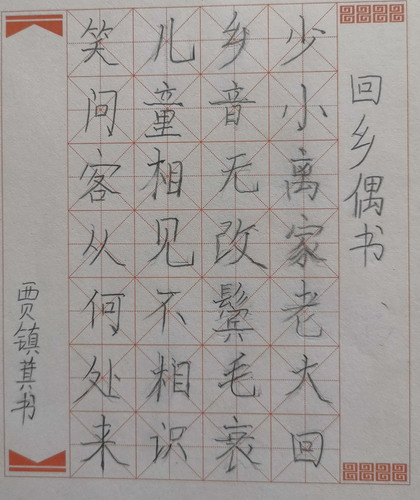 回乡偶书
少小离家老大回
乡音无改鬓毛衰
儿童相见不相识
笑问客从何处来
贾镇萁书